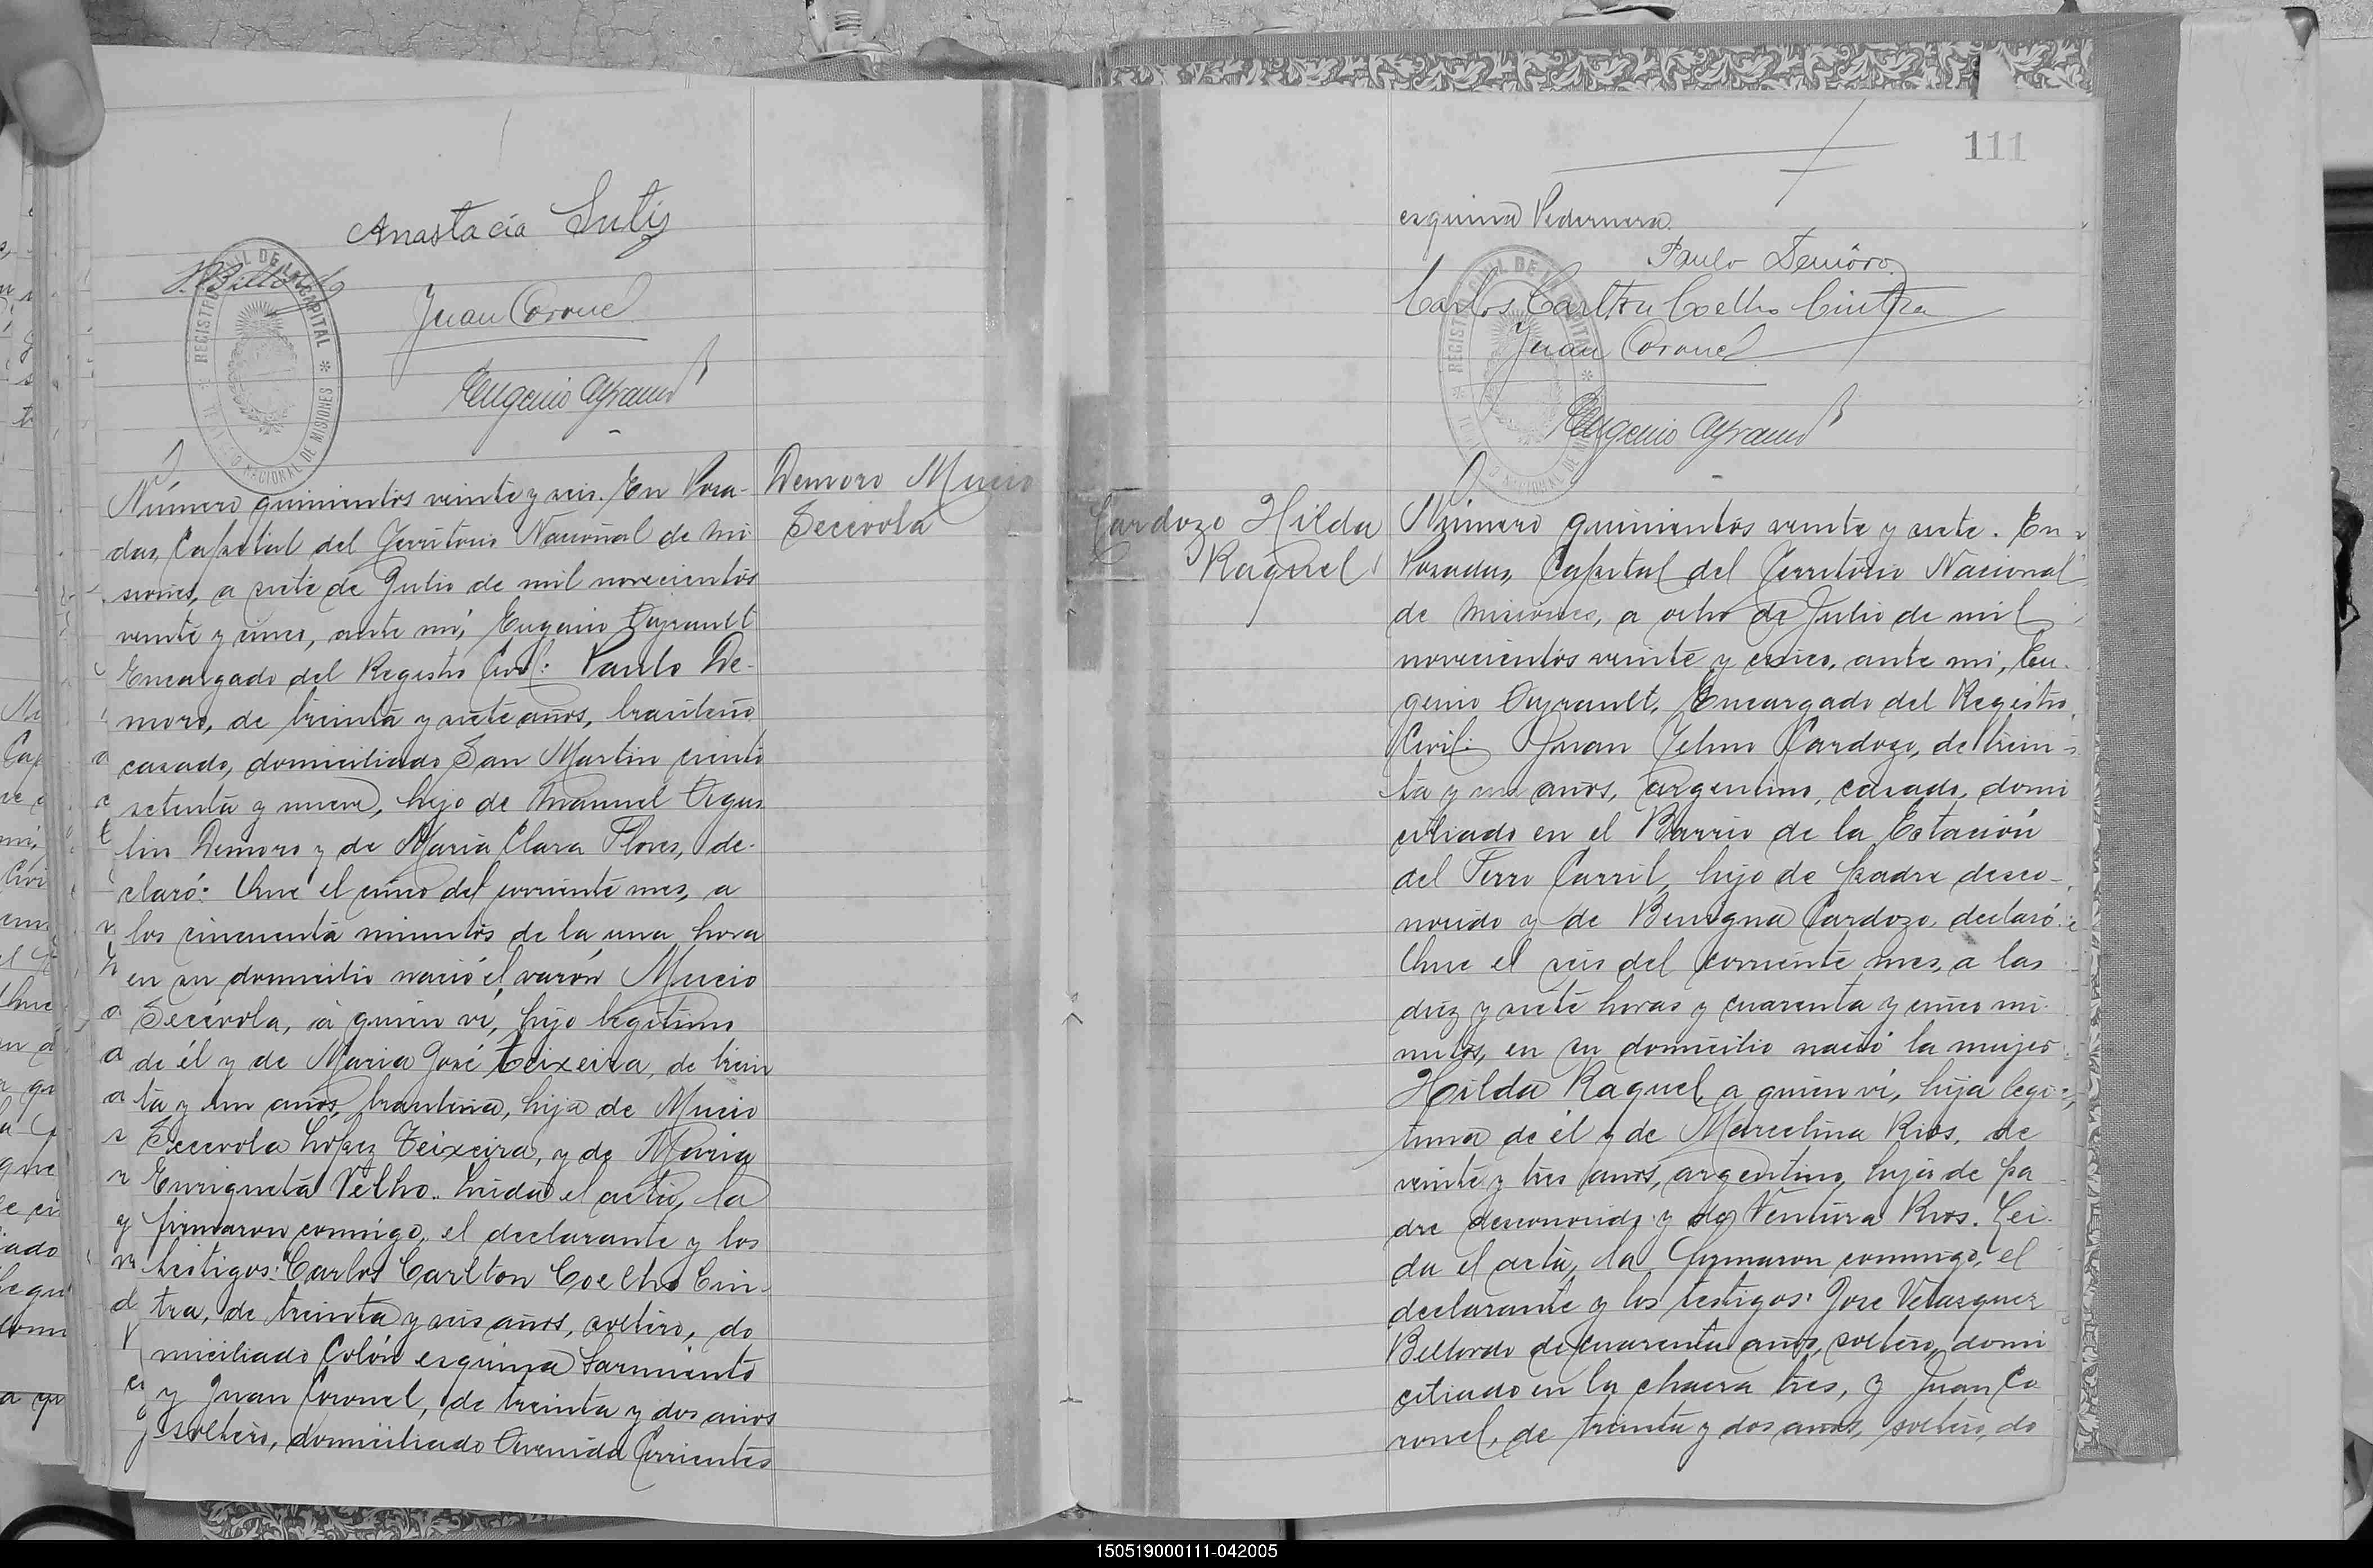 Anastacia
Juan Coronel
REGISTRO CIVIL DE LA CAPITAL
TERRITORIO NACIONAL DE MISIONES
Demoro Mucio
Secevola
Número quinientos veinte y seis. En Posa-
das, Capital del Territorio Nacional de Mi
siones, a siete de Julio de mil novecientos
veinte y cinco, ante mí, Eugenio Ayrault
Encargado del Registro Civil: Paulo De-
moro, de treinta y siete años, brasileño
casado, domiciliado San Martin ciento
setenta y nueve, hijo de Manuel Agus
tin Demoro y de María Clara Flores, de-
claró: Que el cinco del corriente mes, a
los cincuenta minutos de la una hora
en su domicilio nació el varón Mucio
Secévola, a quien ví, hijo legítimo
de él y de Maria José Teixeira, de trein
ta y un años, brasilera, hija de Mucio
Secevola López Teixeira, y de Maria
Enriqueta Velho. Leida el acta, la
firmaron conmigo, el declarante y los
testigos: Carlos Carlton Coelho Cin-
tra, de treinta y seis años, soltero, do
miciliado Colón esquina Sarmiento
y Juan Coronel, de treinta y dos años
soltero, domiciliado Avenida Corrientes
111
esquina Pedernera.
Paulo Demôro
Carlos Carlton Coelho Cintra
Juan Coronel
Eugenio Ayrault
Cardozo Hilda
Raquel
Número quinientos veinte y siete. En
Posadas, Capital del Territorio Nacional
de Misiones, a ocho de Julio de mil
novecientos veinte y cinco, ante mi, Eu-
genio Ayrault, Encargado del Registro
Civil: Juan Telmo Cardozo, de trein-
ta y un años, argentino, casado, domi
ciliado en el Barrio de la Estación
del Ferro Carril, hijo de padre desco-
nocido y de Benigna Cardozo, declaró:
Que el seis del corriente mes, a las
diez y siete horas y cuarenta y cinco mi-
nutos, en su domicilio nació la mujer
Hilda Raquel, a quien ví, hija legí-
tima de él y de Marcelina Rios, de
veinte y tres años, argentina, hija de pa
dre desconocido y de Ventura Rios. Lei-
da el acta, la firmaron conmigo, el
declarante y los testigos: Jose Velazquez
Bellordo de cuarenta años, soltero, domi
ciliado en la chacra tres, y Juan Co
ronel, de treinta y dos años, soltero, do
150519000111-042005